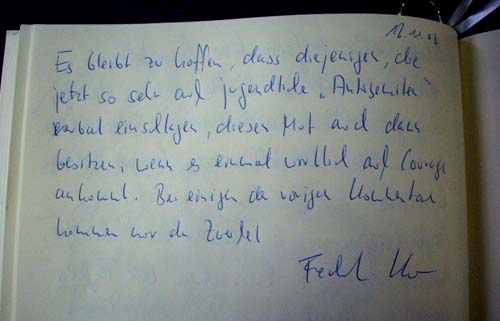 Es bleibt zu hoffen, dass diejenigen, die
jetzt so sehr auf jugendliche „Antisemiten“
verbal einschlagen, diesen Mut auch dann
besitzen, wenn es einmal wirklich auf Courage
ankommt. Bei einigen der vorigen Kommentare
kommen mir da Zweifel